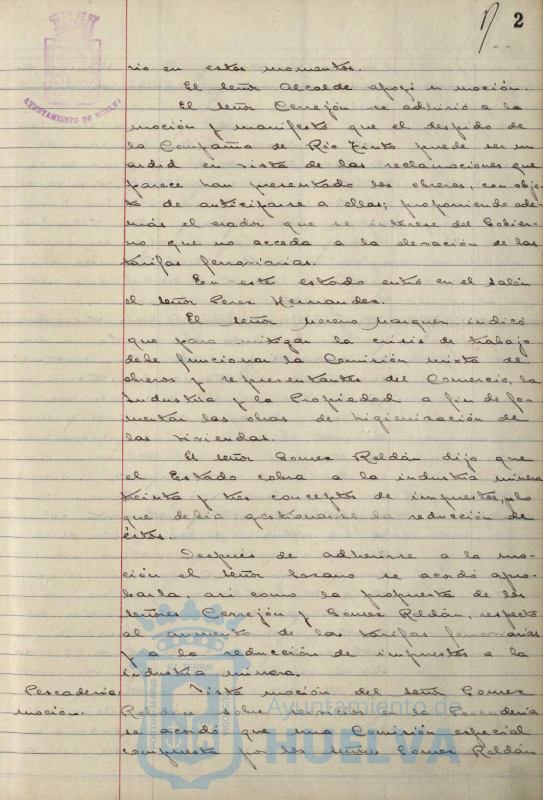 2
AYUNTAMIENTO DE HUELVA
rio en estos momentos.
El señor Alcalde apoyó su moción.
El señor Cerrejón se adhirió a la
moción y manifestó que el despido de
la Compañia de Rio Tinto puede ser un
ardid en vista de las reclamaciones que
parece han presentado los obreros, con obje-
to de anticiparse a ellas; proponiendo ade-
más el orador que se interese del Gobier-
no que no acceda a la elevación de las
tarifas ferroviarias.
En este estado entró en el salón
el señor Perez Hernandez.
El señor Moreno Marquez indicó
que para mitigar la crisis de trabajo
debe funcionar la Comisión mixta de
obreros y representantes del Comercio, la
Industria y la Propiedad a fin de fo-
mentar las obras de higienización de
las viviendas.
El señor Gomez Roldán dijo que
el Estado cobra a la industria minera
treinta y tres conceptos de impuestos, y lo
que debia gestionarse la reducción de
éstos.
Después de adherirse a la mo-
ción el señor Lozano se acordó apro-
barla, asi como la propuesta de los
señores Cerrejón y Gomez Roldán, respecto
al aumento de las tarifas ferroviarias
y a la reducción de impuestos a la
industria minera.
Pescaderia. Vista moción del señor Gomez
moción. Roldán sobre en la Pescaderia
se acordó que una Comisión especial
compuesta por los señores Gomez Roldán
Ayuntamiento de
HUELVA